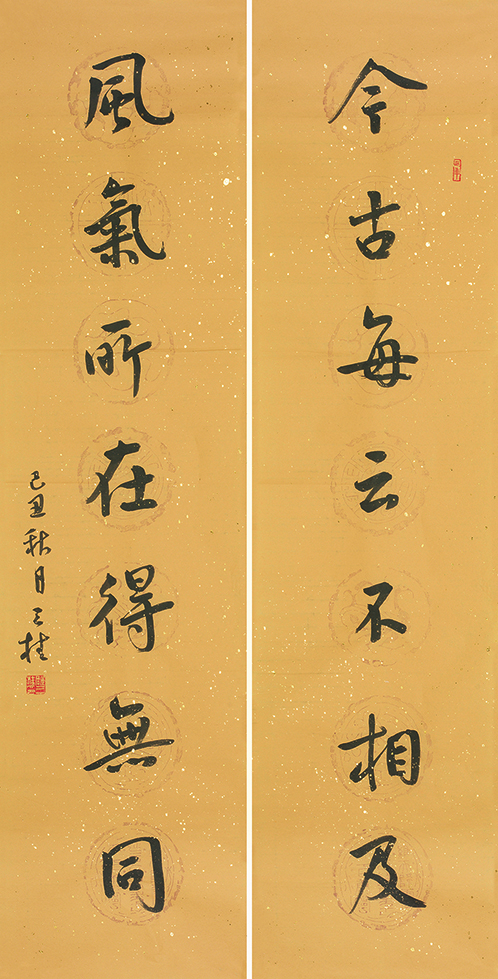 今古每云不相及
風氣所在得無同
己丑秋月三桂